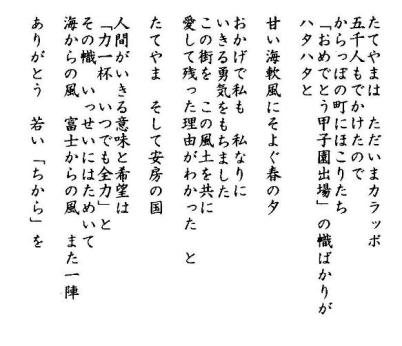 たてやまは　ただいまカラッポ
五千人もでかけたので
からっぽの町にほこりたち
「おめでとう甲子園出場」の幟ばかりが
ハタハタと
甘い海軟風にそよぐ春の夕
おかげで私も　私なりに
いきる勇気をもちました
この街を　この風土を共に
愛して残った理由がわかった　と
たてやま　そして安房の国
人間がいきる意味と希望は
「力一杯　いつでも全力」と
その幟　いっせいにはためいて
海からの風　富士からの風　また一陣
ありがとう　若い「ちから」を